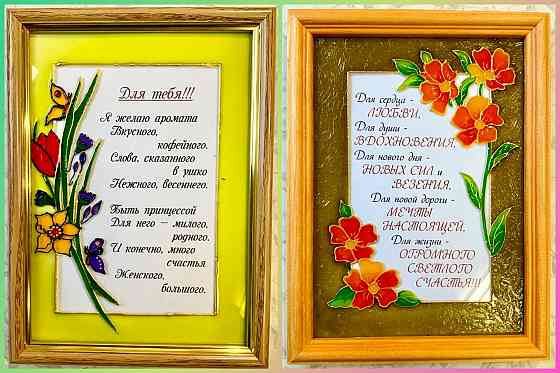 Для тебя!!!
Я желаю аромата
Вкусного,
кофейного.
Слова, сказанного
в ушко
Нежного, весеннего.
Быть принцессой
Для него – милого,
родного.
И конечно, много
счастья
Женского,
большого.
Для сердца -
ЛЮБВИ,
Для души -
ВДОХНОВЕНИЯ,
Для нового дня -
НОВЫХ СИЛ и
ВЕЗЕНИЯ,
Для новой дороги -
МЕЧТЫ
НАСТОЯЩЕЙ,
Для жизни -
ОГРОМНОГО
СВЕТЛОГО
СЧАСТЬЯ!!!